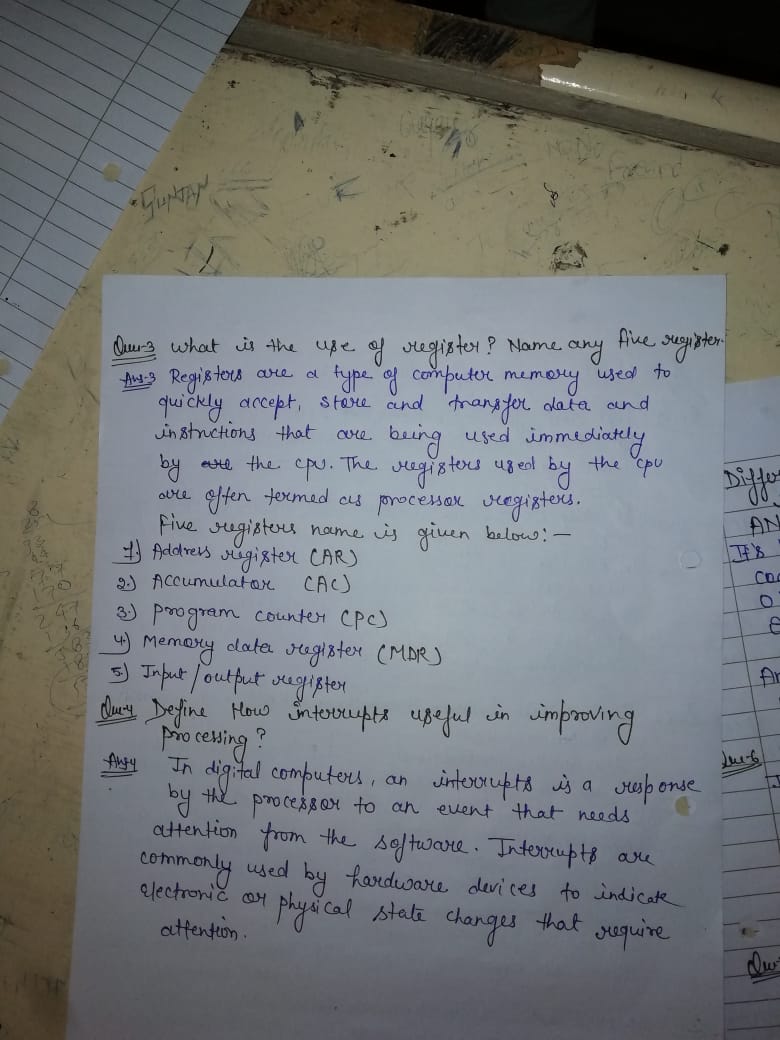 GUNJAN
Que-3 what is the use of register? Name any five register.
Ans-3 Registers are a type of computer memory used to
quickly accept, store and transfer data and
instructions that are being used immediately
by are the cpu. The registers used by the cpu
are often termed as processor registers.
Five registers name is given below:-
1.) Address register (AR)
2.) Accumulator (AC)
3.) Program counter (PC)
4.) Memory data register (MDR)
5.) Input/output register
Que-4 Define How interrupts useful in improving
processing?
Ans4 In digital computers, an interrupts is a response
by the processor to an event that needs
attention from the software. Interrupts are
commonly used by hardware devices to indicate
electronic or physical state changes that require
attention.
Differ
AN
It's
Que-6